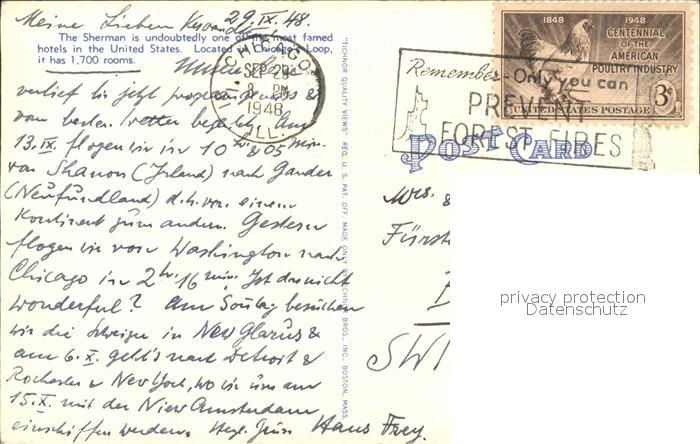 29.IX.48.
Meine Lieben
The Sherman is undoubtedly one of the most famed
hotels in the United States. Located in Chicago's Loop,
it has 1,700 rooms.
Unsere Reise
verlief bis jetzt programmgemäss &
vom besten Wetter begleitet. Am
13.IX. flogen wir in 10 Std & 05 Min.
von Shanon (Irland) nach Gander
(Neufundland) d.h. von einem
Kontinent zum andern. Gestern
flogen wir von Washington nach
Chicago in 2 Std. 16 min. Ist das nicht
wonderful? Am Sonntag besuchen
wir die Schweizer in New Glarus &
am 6.X. geht's nach Detroit &
Rochester & New York, wo wir uns am
15.X. mit der Niew Amsterdam
einschiffen werden. Herzl. Grüsse Hans Frey.
CHICAGO
SEP 29
PM
1948
ILL.
"TICHNOR QUALITY VIEWS" REG. U. S. PAT. OFF. MADE ONLY BY TICHNOR BROS., INC., BOSTON, MASS.
1848 1948
CENTENNIAL
OF THE
AMERICAN
POULTRY INDUSTRY
3¢
UNITED STATES POSTAGE
Remember - Only you can
PREVENT
FOREST FIRES
POST CARD
Mrs. &
Fürst
SWI
privacy protection
Datenschutz